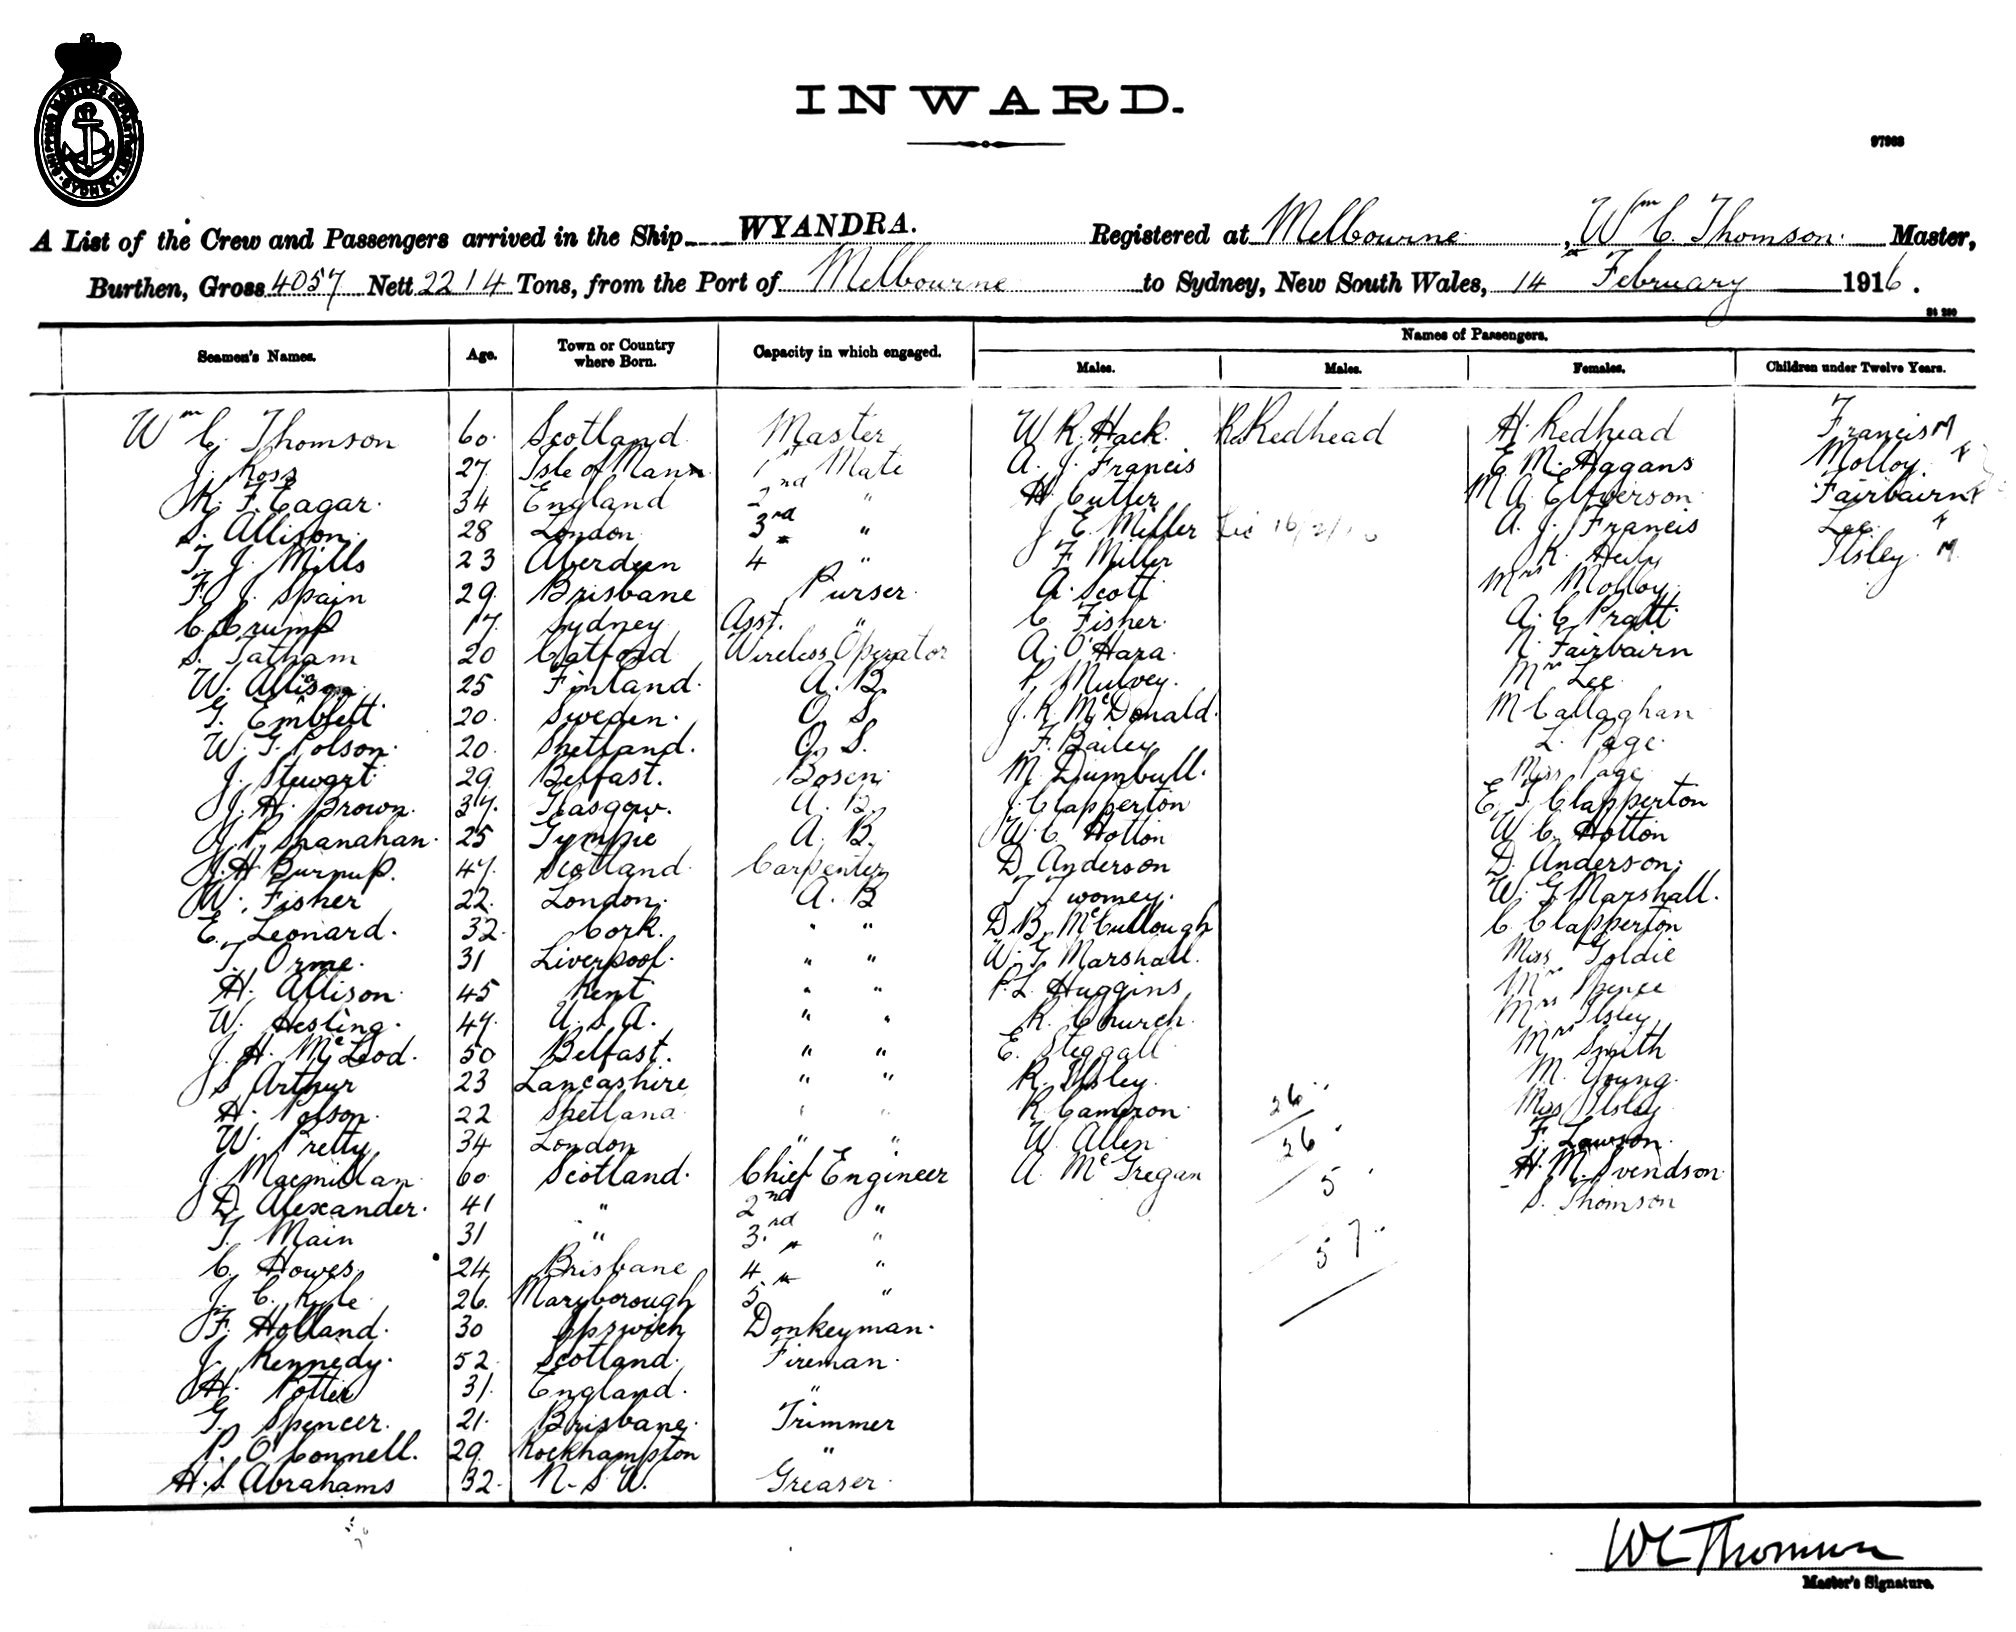 SHIPPING MASTER'S DEPARTMENT · SYDNEY ·
INWARD.
97963
A List of the Crew and Passengers arrived in the Ship WYANDRA. Registered at Melbourne, Wm C. Thomson. Master,
Burthen, Gross 4057 Nett 2214 Tons, from the Port of Melbourne to Sydney, New South Wales, 14 February 1916.
Names of Passengers.
Seamen's Names. Age. Town or Country where Born. Capacity in which engaged. Males. Males. Females. Children under Twelve Years.
Wm C. Thomson 60. Scotland Master W. R. Hack. R. Redhead H. Redhead Francis M
J. Ross 27. Isle of Mann 1st Mate A. J. Francis E. M. Hagans Molloy. F
K. F. Eagar. 34 England 2nd " H. Cutler M. A. Elfverson Fairbairn F
S. Allison. 28 London 3rd " J. E. Miller A. J. Francis Lee. F
T. J. Mills 23 Aberdeen 4 " F. Miller K. Hely Ilsley. M
F. J. Spain 29. Brisbane Purser. A. Scott Mrs Molloy
C. Crump 17. Sydney Asst. " C. Fisher. A. C. Pratt
S. Tatham 20 Catford Wireless Operator A. O'Hara. N. Fairbairn
W. Allison 25 Finland. A. B. P. Mulvey. Mrs Lee
G. Emblett 20. Sweden. O. S. J. R. McDonald. M Callaghan
W. G. Polson. 20. Shetland. O. S. F. Bailey L. Page.
J. Stewart 29 Belfast. Bosen. M. Dumbull. Miss Page
J. H. Brown. 37. Glasgow. A. B. J. Clapperton E. T. Clapperton
J. P. Shanahan. 25 Gympie A. B. W. C. Hotton W. C. Hotton
J. H Burnup. 47. Scotland. Carpenter D. Anderson D. Anderson.
W. Fisher 22. London. A. B T. Twomey. W. G. Marshall.
E. Leonard. 32. Cork. " " D. B. McCullough C. Clapperton
T. Orme. 31 Liverpool. " " W. G. Marshall. Miss Goldie
H. Allison. 45 Kent " " P. L. Huggins Mrs Spence
W. Hesling. 47. U. S. A. " " R. Church. Mrs Ilsley
J. H. McLeod. 50 Belfast. " " E. Steggall Mrs Smith
S. Arthur 23 Lancashire " " R. Ilsley. M. Young.
H. Polson. 22 Shetland " " R. Cameron. 26 Miss Ilsley
W. Pretty 34 London " " W. Allen 26 F. Lawson.
J. Macmillan 60. Scotland. Chief Engineer A. McGregan 5 H. M. Svendson
D. Alexander. 41 " 2nd " S. Thomson
T. Main 31 " 3rd " 57
C. Howes 24 Brisbane 4 "
J. C. Kyle 26. Maryborough 5 "
F. Holland. 30 Ipswich Donkeyman.
J. Kennedy. 52. Scotland. Fireman.
H. Potter 31. England. "
G. Spencer. 21. Brisbane. Trimmer
P. O'Connell. 29. Rockhampton "
H. S. Abrahams 32. N. S. W. Greaser.
WC Thomson
Master's Signature.